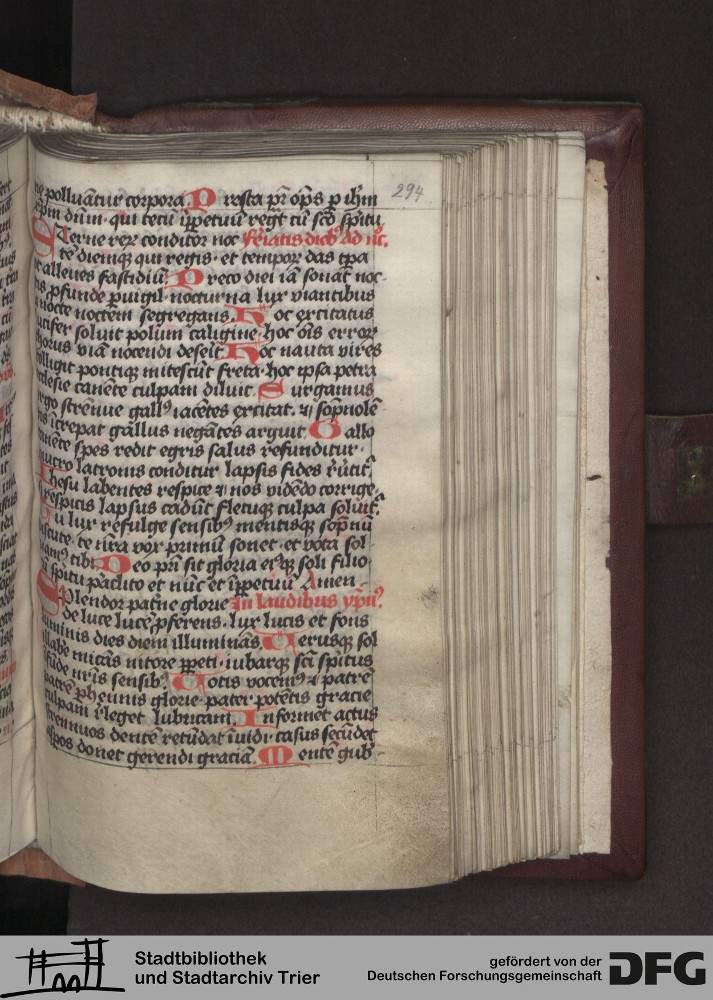 polluantur corpora. Presta pr̄ op̄s p ihm
xpm dnm. qui tecū ippetuū regt cū sco spitu
Eterne reꝝ conditor noc Feriatis dieb⁹ Ad nc.
tē diemqꝫ qui regis. et tempoꝝ das tpa
alleues fastidiū. Preco diei iā sonat noc
tis pfunde puigil. nocturna lux viantibus
a nocte noctem segregans. Hoc excitatus
lucifer soluit polum caligine. hoc ōis erroꝝ
chorus viā nocendi deserit. Hoc nauta vires
colligit pontiqꝫ mitescūt freta. hoc ipsa petra
ecclesie canēte culpam diluit. Surgamus
ergo strēnue gall⁹ iacētes excitat. ⁊ sōpnolē
tos īcrepat gallus negātes arguit. Gallo
canēte spes redit egris salus refunditur.
mucro latronis conditur lapsis fides
Ihesu labentes respice ⁊ nos vidēdo corrige.
si respicis lapsus cadūt fletuqꝫ culpa soluit̄.
Tu lux refulge sensib⁹ mentisqꝫ sopnū
discute. te nr̄a vox primū sonet. et vota sol
uam⁹ tibi. Deo pr̄i sit gloria ei⁹qꝫ soli filio
cū spitu paclito et nūc et ippetuū Amen.
Splendor patne glorie In laudibus ypn̄⁹.
de luce lucē pferens. lux lucis et fons
luminis dies diem illuminās. Verusqꝫ sol
illabe micās nitore ppeti. iubarqꝫ sci spitus
īfūde nr̄is sensib⁹. Votis vocem⁹ ⁊ patrē
patrē phennis glorie. pater potētis gracie
culpam r̄leget lubricam. Informet actus
strennuos dentē retūdat īuidi. casus secūdet
aspos donet gerendi graciā. Mentē gub
294
Stadtbibliothek
und Stadtarchiv Trier
gefördert von der
Deutschen Forschungsgemeinschaft
DFG